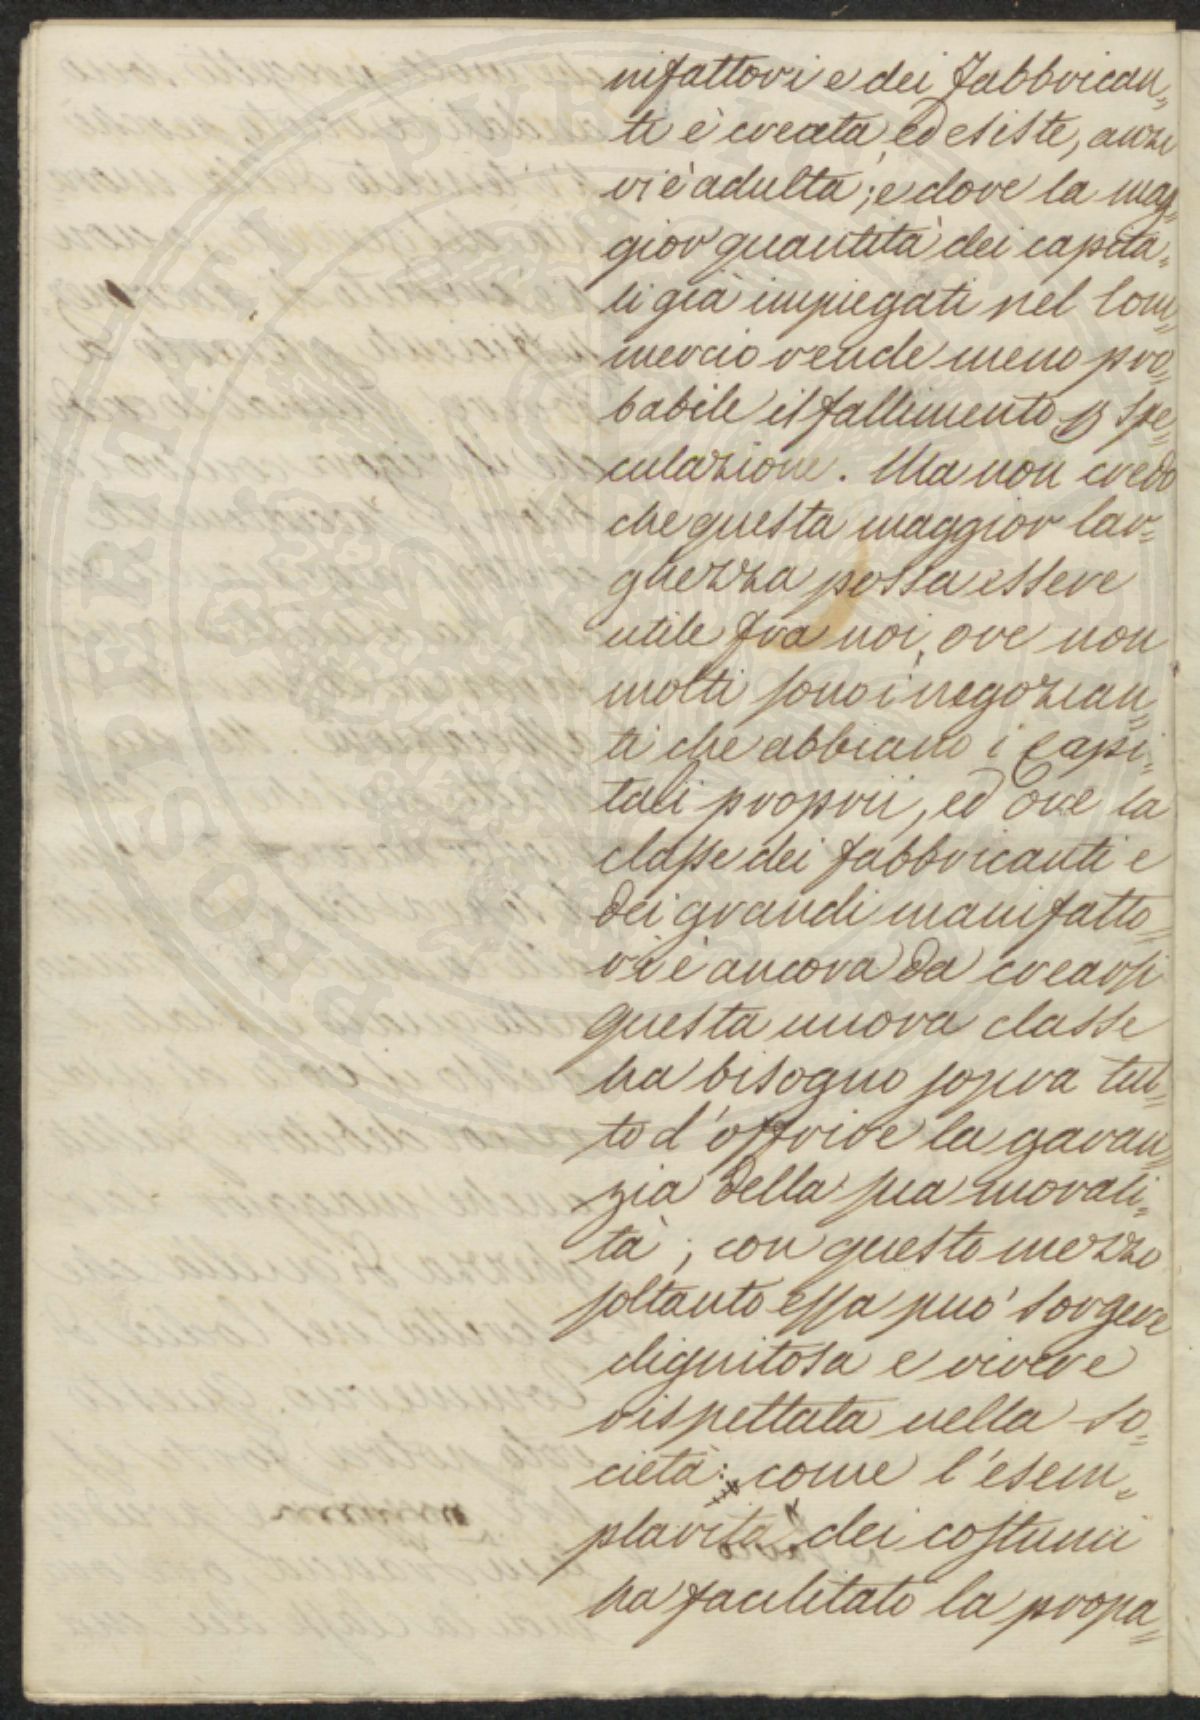 nifattori e dei Fabbrican=
ti è creata, ed esiste, anzi
vi è adulta; e dove la mag=
gior quantità dei capita=
li già impiegati nel Com=
mercio rende meno pro=
babile il fallimento p Spe=
culazione. Ma non credo
che questa maggior lar=
ghezza possa essere
utile fra noi, ove non
molti sono i negozian=
ti che abbiano i Capi=
tali proprii, ed ove la
classe dei fabbricanti e
dei grandi manifatto=
ri è ancora da crearsi
questa nuova classe
ha bisogno sopra tut=
to d'offrire la garan=
zia della sua morali=
tà; con questo mezzo
soltanto essa può sorgere
dignitosa e vivere
rispettata nella So=
cietà: come l'esem=
plarità dei costumi
ha facilitato la propa=
PROSPERITATI PUBLICAE